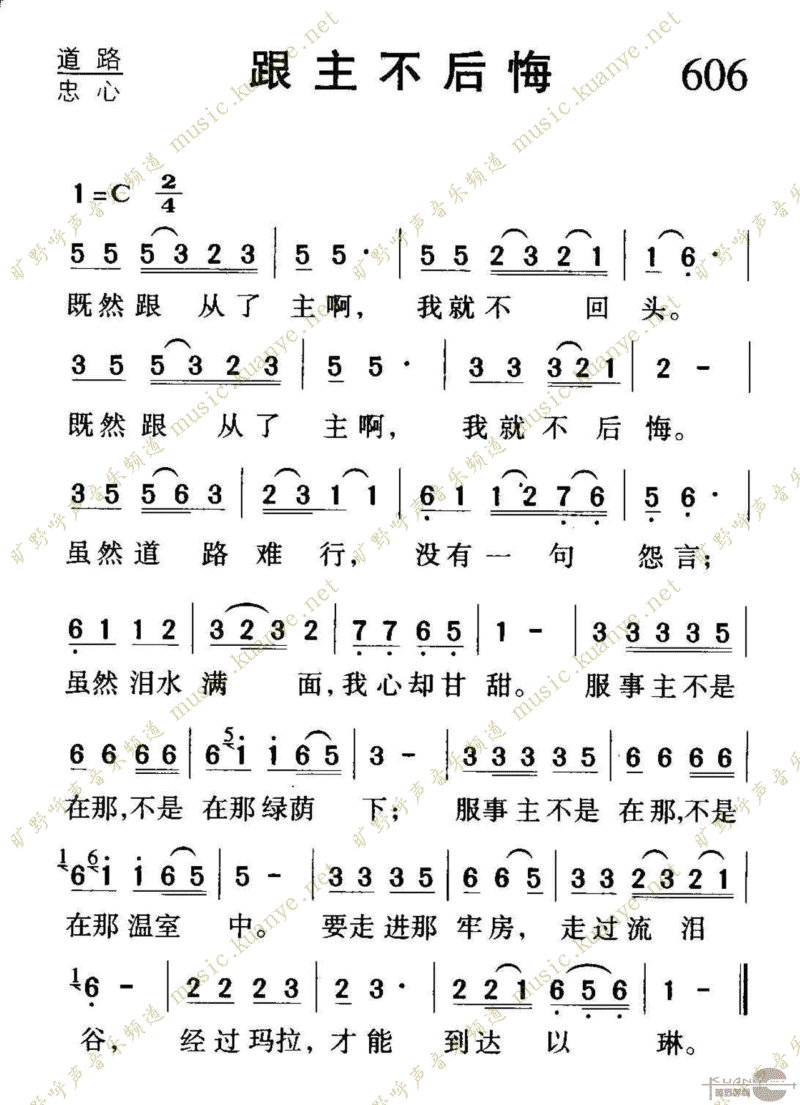 道路
忠心
跟主不后悔 606
1=C 2/4
5 5 5 3 2 3 | 5 5 · | 5 5 2 3 2 1 | 1 6 ·
既然跟 从了 主啊， 我就不 回 头。
3 5 5 3 2 3 | 5 5 · | 3 3 3 2 1 | 2 -
既然跟 从了 主啊， 我就不后 悔。
3 5 5 6 3 | 2 3 1 1 | 6 1 1 2 7 6 | 5 6 ·
虽然道 路难 行， 没有一 句 怨言；
6 1 1 2 | 3 2 3 2 | 7 7 6 5 | 1 - | 3 3 3 3 5
虽然泪水满 面，我心却甘 甜。 服事主不是
6 6 6 6 | 5 6 1 1 6 5 | 3 - | 3 3 3 3 5 | 6 6 6 6
在那，不是 在那绿荫 下； 服事主不是 在那，不是
1 6 6 1 1 6 5 | 5 - | 3 3 3 5 | 6 6 5 | 3 3 2 3 2 1
在那温室 中。 要走进那 牢房， 走过流 泪
1 6 - | 2 2 2 3 | 2 3 · | 2 2 1 6 5 6 | 1 -
谷， 经过玛拉，才能 到达 以 琳。
旷野呼声音乐频道 music.kuanye.net
KUAN